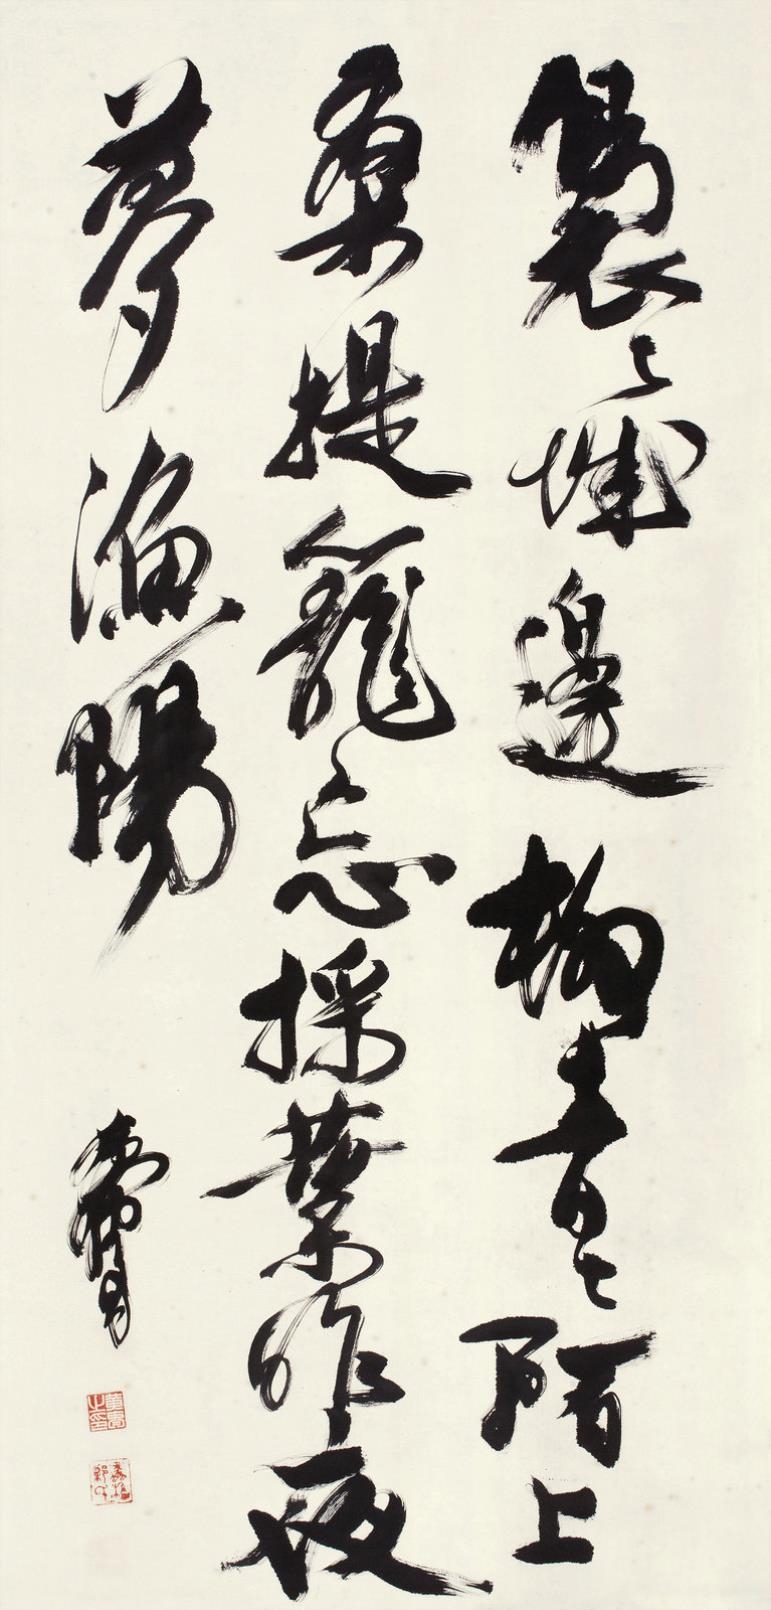 裊々城邊柳青々陌上
桑提籠忘採葉昨夜
夢漁陽